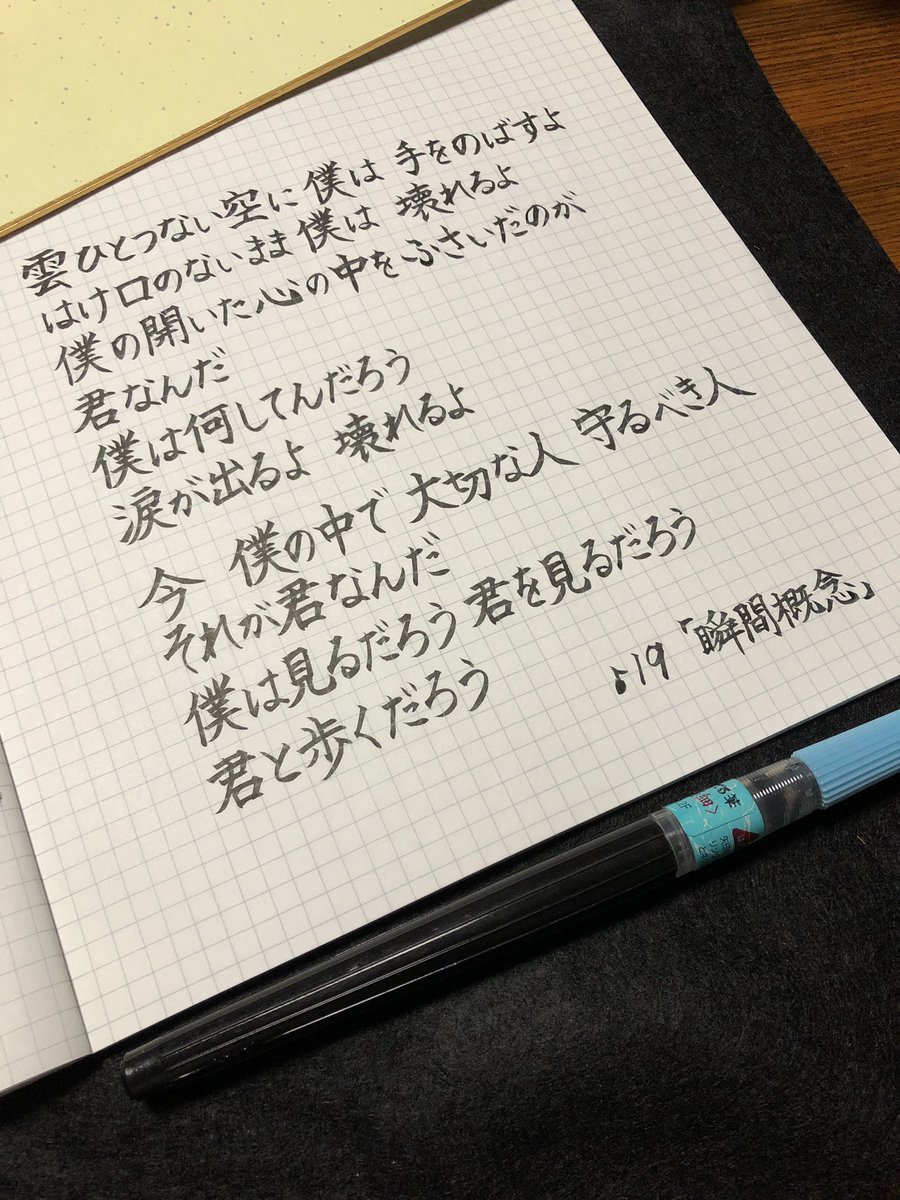 雲ひとつない空に 僕は 手をのばすよ
はけ口のないまま 僕は 壊れるよ
僕の開いた心の中を ふさいだのが
君なんだ
僕は何してんだろう
涙が出るよ 壊れるよ
今 僕の中で 大切な人 守るべき人
それが君なんだ
僕は見るだろう 君を見るだろう
君と歩くだろう
♪19 「瞬間概念」